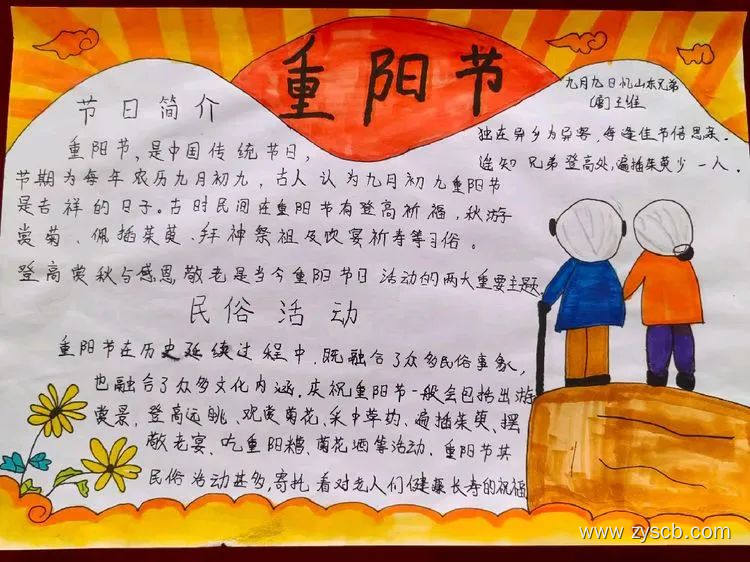 重阳节
九月九日忆山东兄弟
(唐)王维
独在异乡为异客，每逢佳节倍思亲.
遥知兄弟登高处,遍插茱萸少一人.
节日简介
重阳节,是中国传统节日，
节期为每年农历九月初九，古人认为九月初九重阳节
是吉祥的日子。古时民间在重阳节有登高祈福，秋游
赏菊、佩插茱萸、拜神祭祖及饮宴祈寿等习俗。
登高赏秋与感恩敬老是当今重阳节日活动的两大重要主题.
民俗活动
重阳节在历史延续过程中.既融合了众多民俗事象,
也融合了众多文化内涵.庆祝重阳节一般会包括出游
赏景、登高远眺、观赏菊花、采中草药、遍插茱萸、摆
敬老宴、吃重阳糕、菊花酒等活动.重阳节其
民俗活动甚多,寄托着对老人们健康长寿的祝福
www.zyscb.com